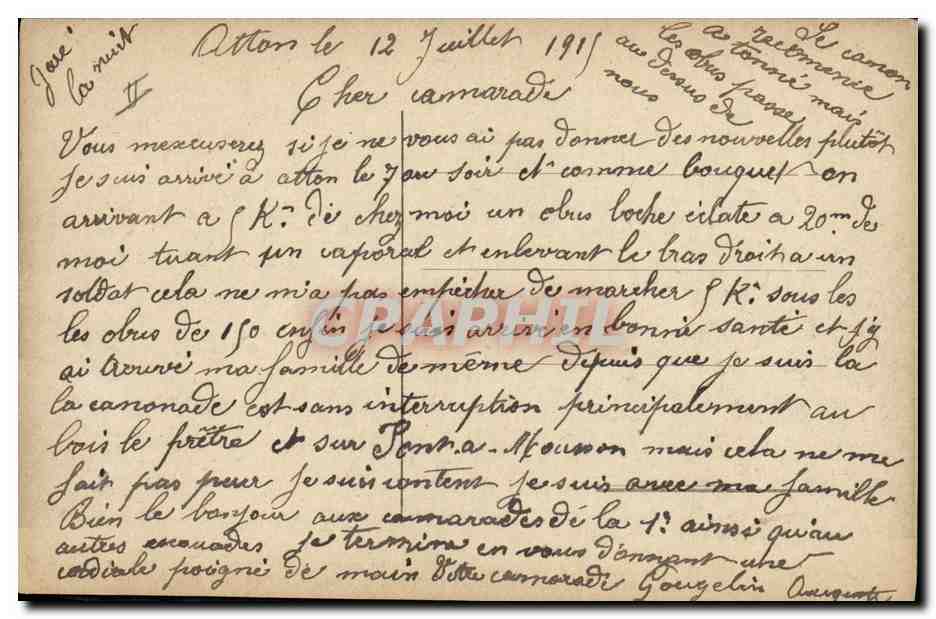 la nuit
II
Atton le 12 Juillet 1915
Le canon
recomence
a tonné mais
les obus passe
au dessus de
nous
Cher camarade
Vous mexcuserez si je ne vous ai pas donner des nouvelles plutôt
Je suis arrivé à atton le 7 au soir et comme bouquet on
arrivant a 5 Km de chez moi un obus boche éclate a 20m de
moi tuant un caporal et enlevant le bras droit a un
soldat cela ne m'a pas empécher de marcher 5 Km sous les
les obus de 150 enfin je suis arrivé en bonne santé et j'y
ai trouvé ma famille de même depuis que je suis la
la canonade est sans interruption principalement au
bois le prêtre et sur Pont-a-Mousson mais cela ne me
fait pas peur je suis content je suis avec ma famille
Bien le bonjour aux camarades de la 1e ainsi qu'au
autres escouades je termine en vous donnant une
cordiale poigné de main Votre camarade Gougelin Auguste
CPAPHIL